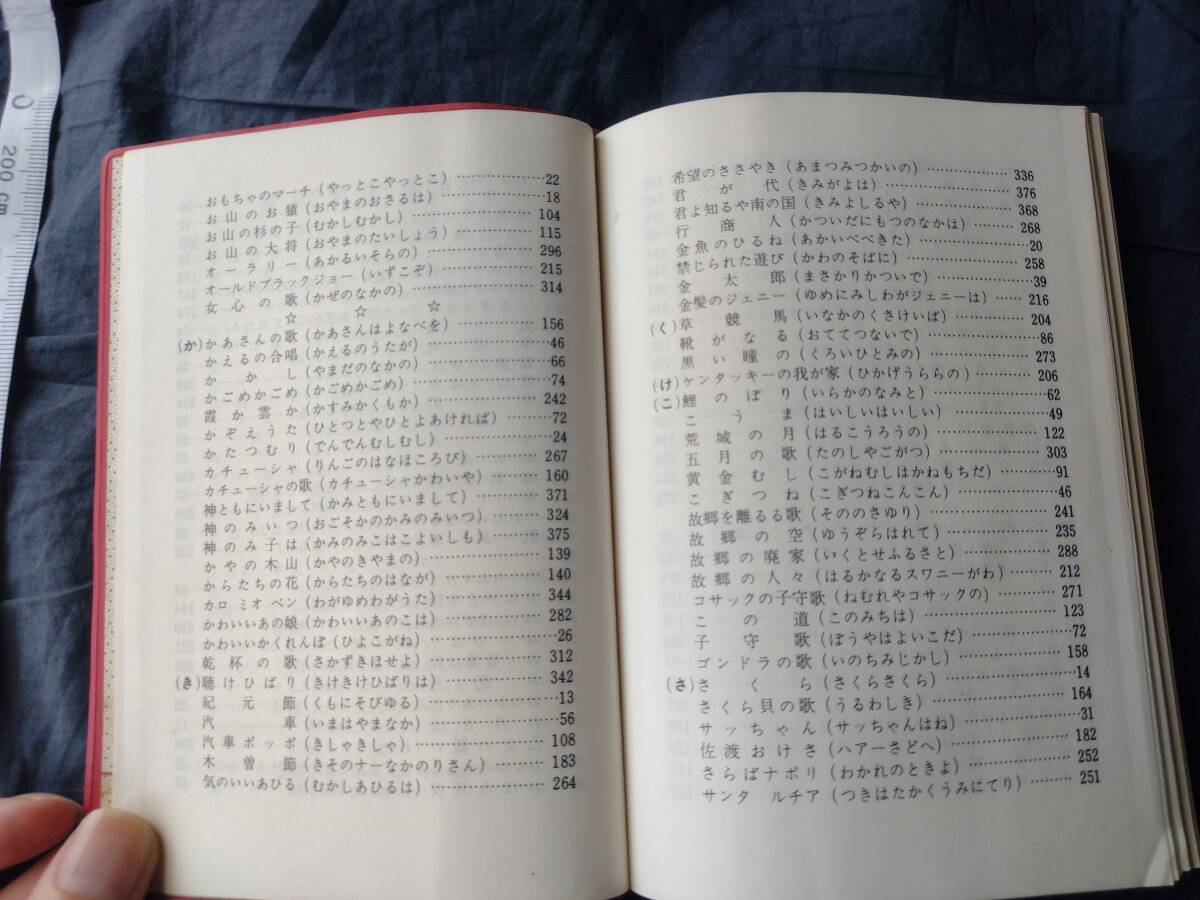 0
200 cm
おもちゃのマーチ(やっとこやっとこ)……………22
お山のお猿(おやまのおさるは)……………18
お山の杉の子(むかしむかし)……………104
お山の大将(おやまのたいしょう)……………115
オーラリー(あかるいそらの)……………296
オールドブラックジョー(いずこぞ)……………215
女心の歌(かぜのなかの)……………314
☆ ☆ ☆
(か)かあさんの歌(かあさんはよなべを)……………156
かえるの合唱(かえるのうたが)……………46
かかし(やまだのなかの)……………66
かごめかごめ(かごめかごめ)……………74
霞か雲か(かすみかくもか)……………242
かぞえうた(ひとつとやひとよあければ)……………72
かたつむり(でんでんむしむし)……………24
カチューシャ(りんごのはなほころび)……………267
カチューシャの歌(カチューシャかわいや)……………160
神ともにいまして(かみともにいまして)……………371
神のみいつ(おごそかのかみのみいつ)……………324
神のみ子は(かみのみこはこよいしも)……………375
かやの木山(かやのきやまの)……………139
からたちの花(からたちのはなが)……………140
カロ ミオ ベン(わがゆめわがうた)……………344
かわいいあの娘(かわいいあのこは)……………282
かわいいかくれんぼ(ひよこがね)……………26
乾杯の歌(さかずきほせよ)……………312
(き)聴けひばり(きけきけひばりは)……………342
紀元節(くもにそびゆる)……………13
汽車(いまはやまなか)……………56
汽車ポッポ(きしゃきしゃ)……………108
木曽節(きそのナーなかのりさん)……………183
気のいいあひる(むかしあひるは)……………264
希望のささやき(あまつみつかいの)……………336
君が代(きみがよは)……………376
君よ知るや南の国(きみよしるや)……………368
行商人(かついだにもつのなかは)……………268
金魚のひるね(あかいべべきた)……………20
禁じられた遊び(かわのそばに)……………258
金太郎(まさかりかついで)……………39
金髪のジェニー(ゆめにみしわがジェニーは)……………216
(く)草競馬(いなかのくさけいば)……………204
靴がなる(おててつないで)……………86
黒い瞳の(くろいひとみの)……………273
(け)ケンタッキーの我が家(ひかげうららの)……………206
(こ)鯉のぼり(いらかのなみと)……………62
こうま(はいしいはいしい)……………49
荒城の月(はるこうろうの)……………122
五月の歌(たのしやごがつ)……………303
黄金むし(こがねむしはかねもちだ)……………91
こぎつね(こぎつねこんこん)……………46
故郷を離るる歌(そののさゆり)……………241
故郷の空(ゆうぞらはれて)……………235
故郷の廃家(いくとせふるさと)……………288
故郷の人々(はるかなるスワニーがわ)……………212
コサックの子守歌(ねむれやコサックの)……………271
この道(このみちは)……………123
子守歌(ぼうやはよいこだ)……………72
ゴンドラの歌(いのちみじかし)……………158
(さ)さくら(さくらさくら)……………14
さくら貝の歌(うるわしき)……………164
サッちゃん(サッちゃんはね)……………31
佐渡おけさ(ハアーさどへ)……………182
さらばナポリ(わかれのときよ)……………252
サンタ ルチア(つきはたかくうみにてり)……………251